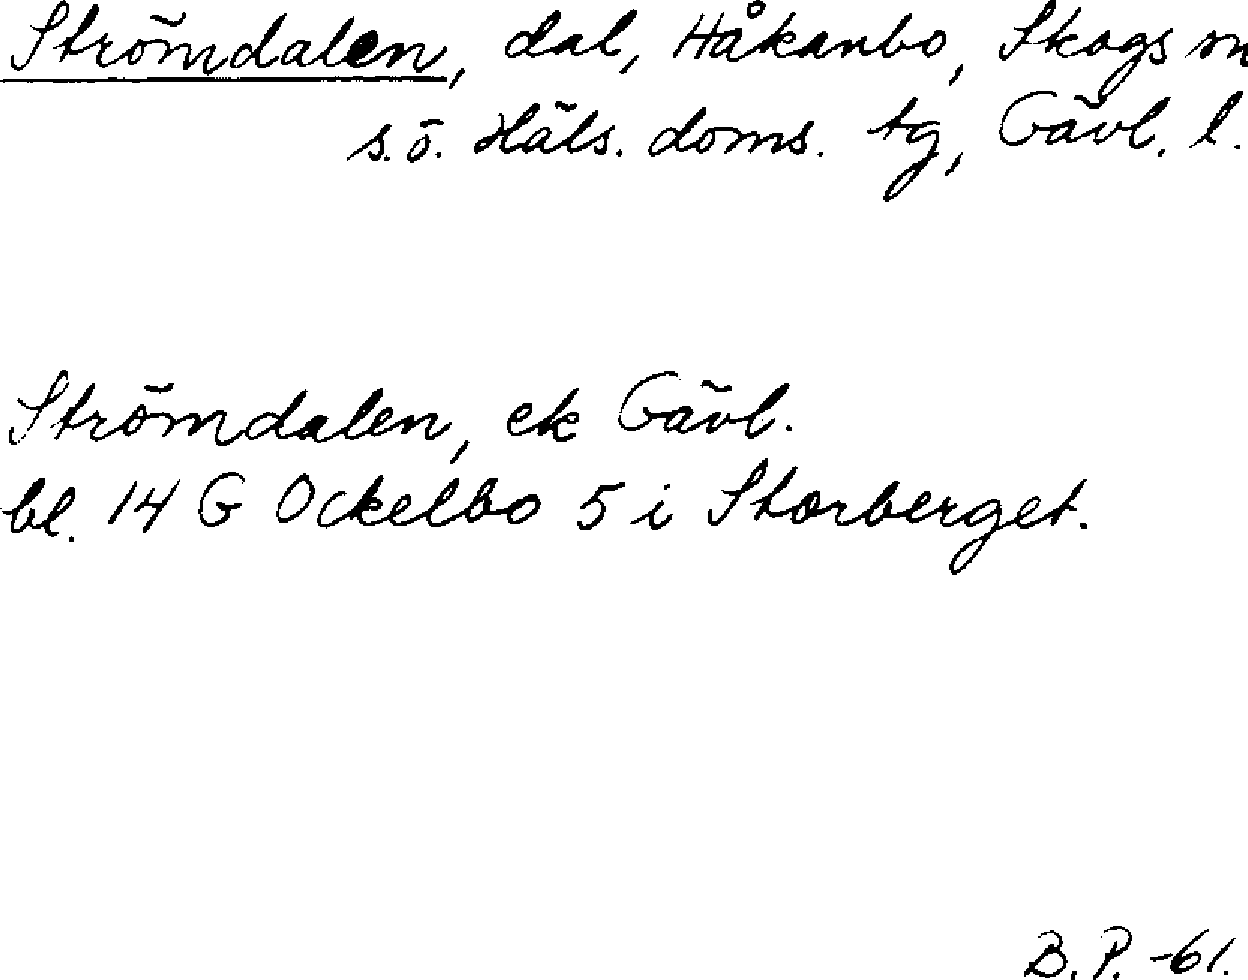 Strömdalen, dal, Håkanbo, Skogs sn
s.ö. Häls. doms. tg, Gävl. l.
Strömdalen, ek Gävl.
bl. 14 G Ockelbo 5 i Storberget.
B. P. -61.